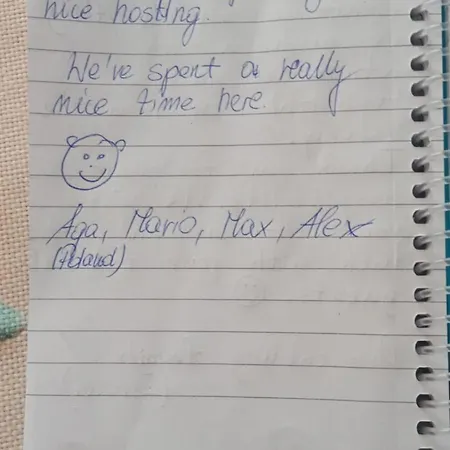 nice hosting.
We've spent a really
nice time here.
Aga, Mario, Max, Alex
(Poland)